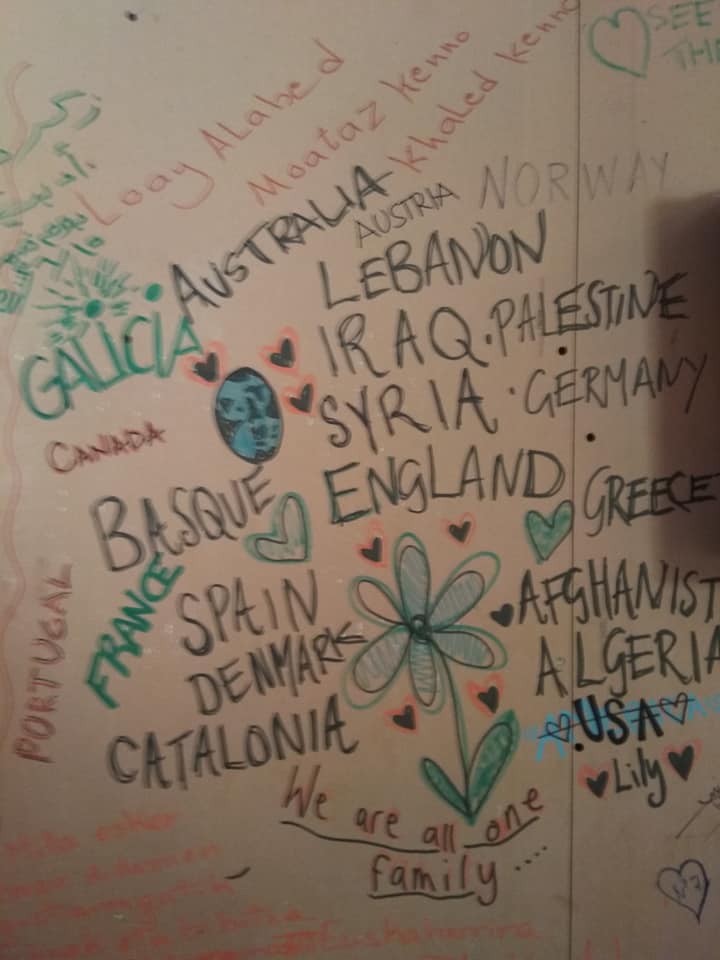 SEE
Loay ALabed
Moataz kenno
khaled kenno
AUSTRALIA
AUSTRIA
NORWAY
LEBANON
IRAQ·PALESTINE
SYRIA·GERMANY
GALICIA
CANADA
ENGLAND
GREECE
BASQUE
FRANCE
SPAIN
PORTUGAL
DENMARK
CATALONIA
AFGHANIST
ALGERIA
USA
Lily
We are all one
family....
Mila esker